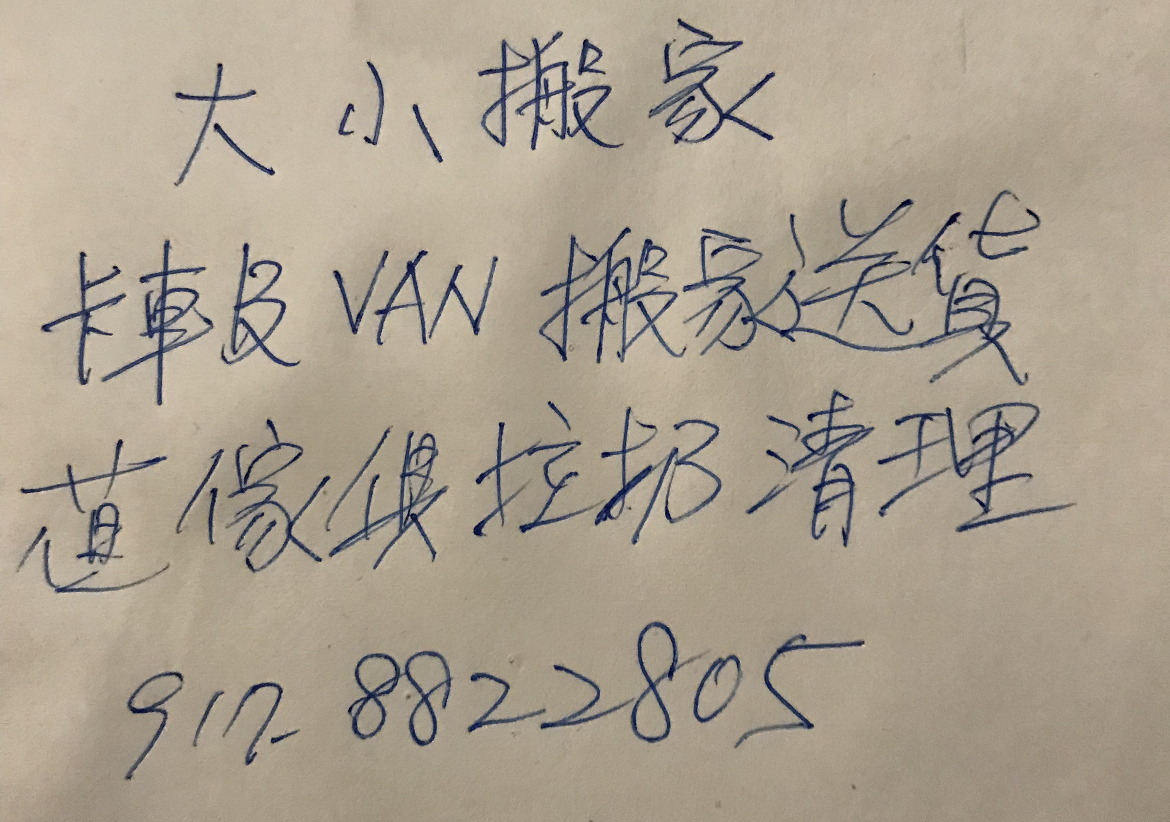 大小搬家
卡車及VAN搬家送货
道傢俱拉扔清理
917 8822805